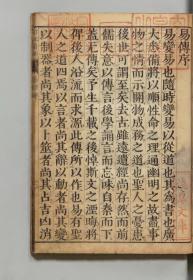 易傳序
易變易也隨時變易以從道也其為書也廣
大悉備將以順性命之理通幽明之故盡事
物之情而示開物成務之道也聖人之憂患
後世可謂至矣去古雖遠遺經尚存然而前
儒失意以傳言後學誦言而忘味自秦而下
蓋无傳矣予生千載之後悼斯文之湮晦將
俾後人沿流而求源此傳所以作也易有聖
人之道四焉以言者尚其辭以動者尚其變
以制器者尚其象以卜筮者尚其占吉凶消